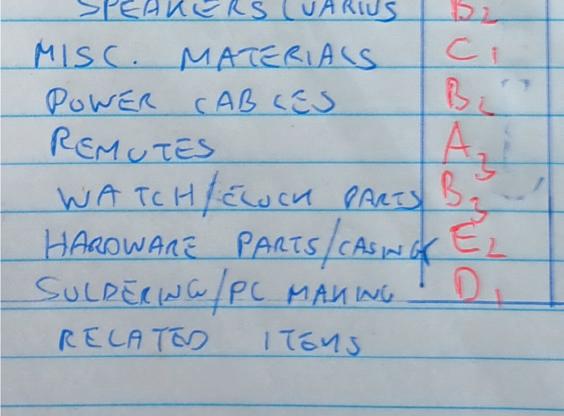 SPEAKERS (VARIUS B2
MISC. MATERIALS C1
POWER CABLES B2
REMOTES A3
WATCH/CLOCK PARTS B3
HARDWARE PARTS/CASING E2
SOLDERING/PC MAKING D1
RELATED ITEMS